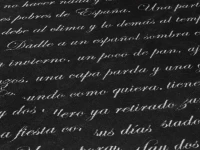 no hacer nada y
os pobres de España. Una part
debe al clima y lo demás al temp
Dadle a un español sombra e
invierno, un poco de pan, aj
zos, una capa parda y una g
undo como quiera, tiene
y dos. Pero ya retirado
a fiesta co sus días stado
dos